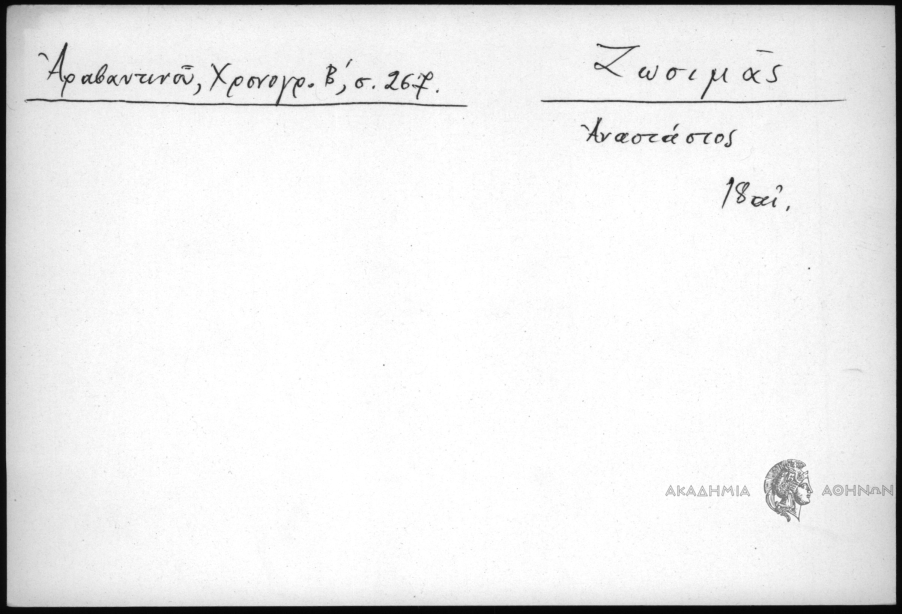 Ἀραβαντινοῦ, Χρονογρ. Β΄, σ. 267.
Ζωσιμᾶς
Ἀναστάσιος
18 αἰ.
ΑΚΑΔΗΜΙΑ ΑΘΗΝΩΝ